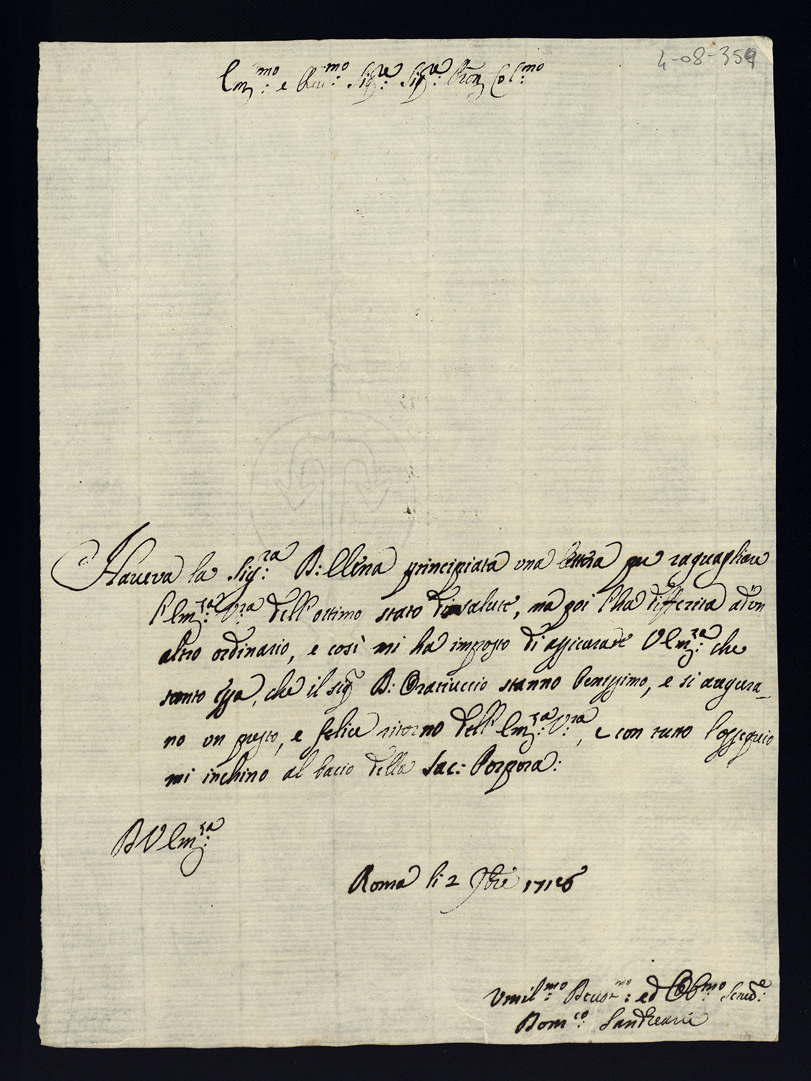 4-08-359
Em:mo e Reu:mo Sig:re Sig:re Pron Col:mo
Haueva la Sig:ra D: Elena principiata una lettera per raguagliare
l'Em:za V:ra dell'ottimo stato di salute, ma poi l'ha differita ad un
altro ordinario, e così mi ha imposto di assicurare V Em:za che
tanto essa, che il sig D: Oratiuccio stanno benissimo, e si augura-
no un presto, e felice ritorno dell'Em:za V:ra, e con tutto l'ossequio
mi inchino al bacio della Sac: Porpora:
D V Em:za
Roma li 2 9bre 1716
Vmil:mo Deuot:mo ed Obb:mo Seruid:e
Dom:co